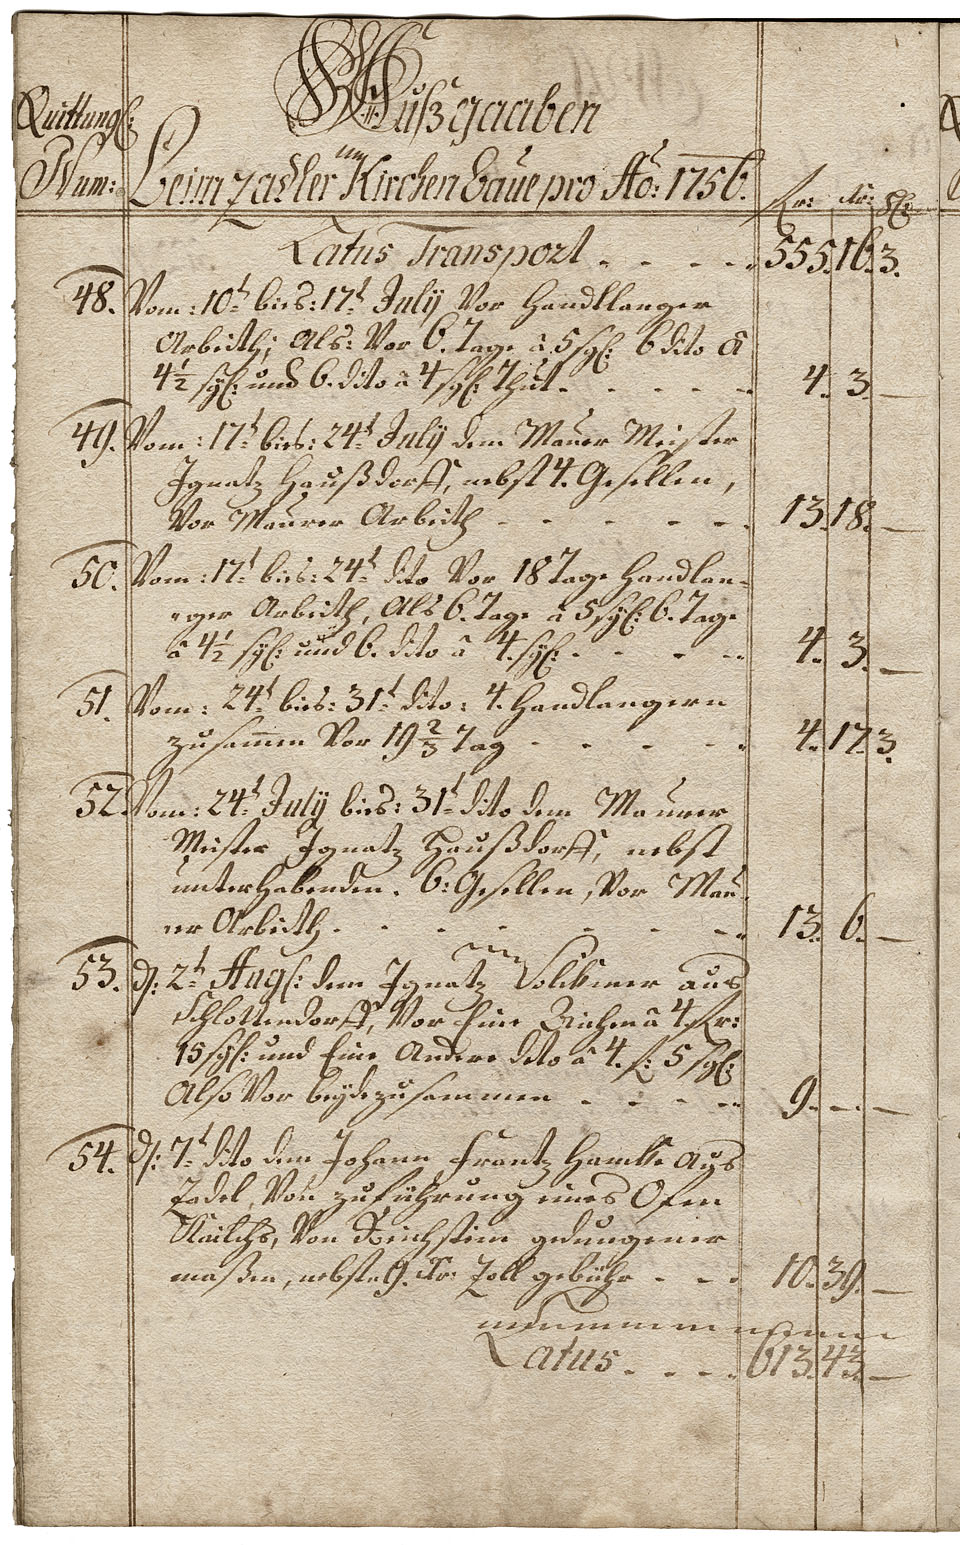 Außgaaben
Quittungs:
Num:
beim Zadler Kirchen baue pro Ao: 1756.
fr: kr: hl:
Latus Transport . . . . 555. 16. 3.
48. Vom: 10t bies: 17t July Vor Handtlanger
Arbeith; Als: Vor 6. Tage â 5 sgl: 6 dito â
4½ sgl: und 6. dito â 4 sgl: Thut. . . . . 4. 3. —
49. Vom: 17t bies: 24t July dem Mauer Meister
Ignatz Haußdorff, nebst 4. Gesellen,
Vor Maurer Arbeith - - - - - 13. 18. —
50. Vom: 17t bies: 24t dito Vor 18 Tage Handlan-
ger Arbeith, Als 6. Tage â 5 sgl: 6. Tage
â 4½ sgl: und 6. dito â 4. sgl: . . . . 4. 3. —
51. Vom: 24t bies: 31t dito: 4. Handlangern
zusamen Vor 19⅔ Tag - - - - - 4. 17. 3.
52. Vom: 24t July bies: 31t dito dem Maurer
Meister Ignatz Haußdorff, nebst
unterhabenden. 6: Gesellen, Vor Mau-
rer Arbeith. . . . . . . 13. 6. —
53. d: 2t Aug: dem Ignatz aus
Schlottendorff, Vor Eine Eichen â 4. fr:
15 sgl: und Eine Andere dito â 4. f: 5 sgl:
Also Vor beyde zusammen - - - - 9. — —
54. d: 7t dito dem Johann Frantz Hancke Aus
Zadel, Von zuführung eines Ofen
Kailchs, Von gedungener
maßen, nebst 9. kr: Zoll gebühr - - - 10. 39. —
Latus. . . . 613. 43. —